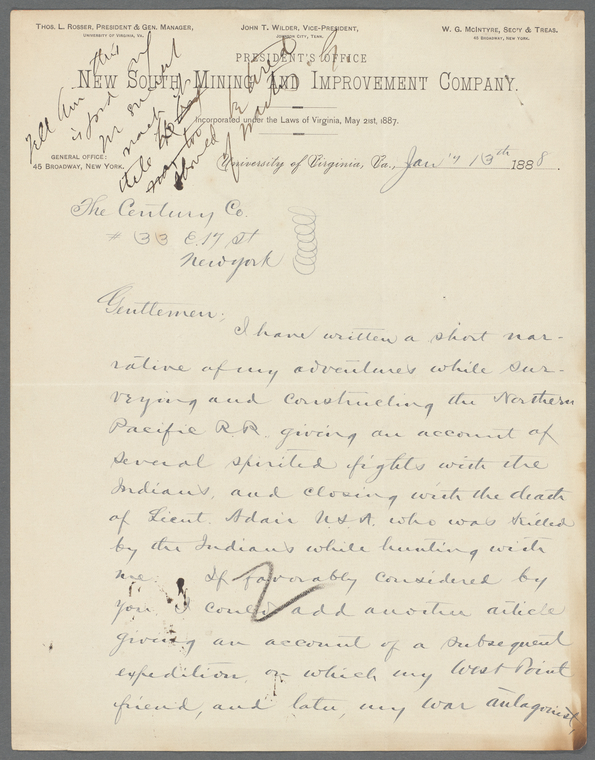 THOS. L. ROSSER, PRESIDENT & GEN. MANAGER,
UNIVERSITY OF VIRGINIA, VA.
JOHN T. WILDER, VICE-PRESIDENT,
JOHNSON CITY, TENN.
W. G. MCINTYRE, SEC'Y & TREAS.
45 BROADWAY, NEW YORK.
PRESIDENT'S OFFICE
NEW SOUTH MINING AND IMPROVEMENT COMPANY.
Incorporated under the Laws of Virginia, May 21st, 1887.
GENERAL OFFICE:
45 BROADWAY, NEW YORK.
Tell him this
is good
University of Virginia, Va., Jan'y 13th 1888.
The Century Co.
# 33 E. 17 St
New york
Gentlemen;
I have written a short nar-
rative of my adventures while sur-
veying and constructing the Northern
Pacific R.R. giving an account of
several spirited fights with the
Indians, and closing with the death
of Lieut. Adair U.S.A. who was killed
by the Indians while hunting with
me. If favorably considered by
you I could add another article
giving an account of a subsequent
expedition, on which my West Point
friend, and later, my war antagonist,